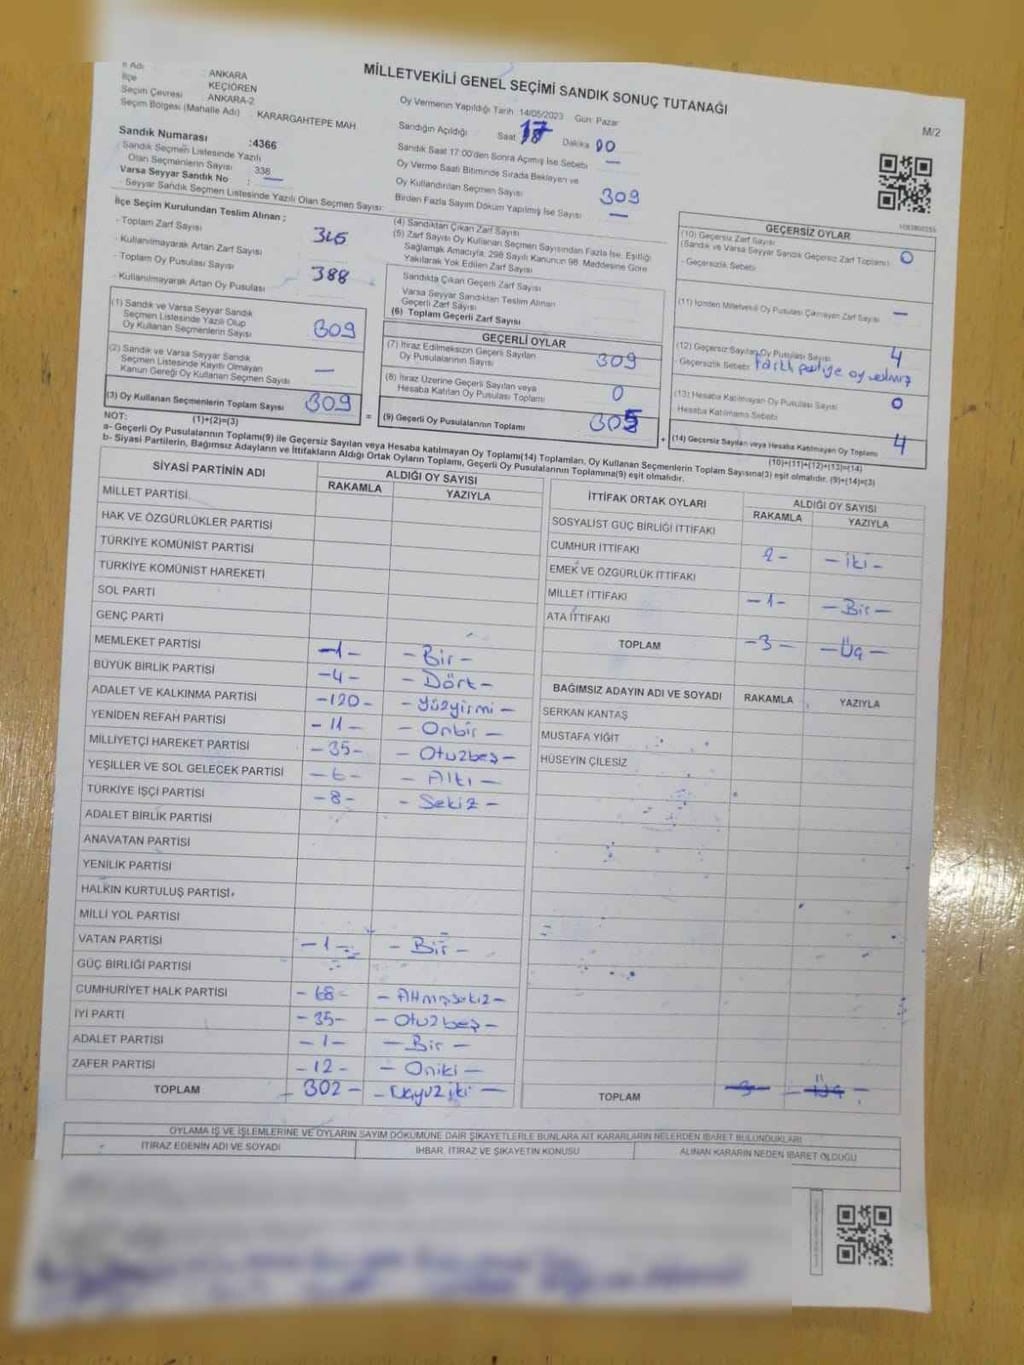 MİLLETVEKİLİ GENEL SEÇİMİ SANDIK SONUÇ TUTANAĞI
M/2
İl Adı : ANKARA
İlçe : KEÇİÖREN
Seçim Çevresi : ANKARA-2
Seçim Bölgesi (Mahalle Adı) : KARARGAHTEPE MAH
Sandık Numarası :4366
Sandık Seçmen Listesinde Yazılı
Olan Seçmenlerin Sayısı : 338
Varsa Seyyar Sandık No : —
Seyyar Sandık Seçmen Listesinde Yazılı Olan Seçmen Sayısı:
Oy Vermenin Yapıldığı Tarih: 14/05/2023 Gün: Pazar
Sandığın Açıldığı Saat 17 Dakika 00
Sandık Saat 17:00'den Sonra Açımış İse Sebebi —
Oy Verme Saati Bitiminde Sırada Bekleyen ve
Oy Kullandırılan Seçmen Sayısı 309
Birden Fazla Sayım Döküm Yapılmış İse Sayısı —
İlçe Seçim Kurulundan Teslim Alınan ;
- Toplam Zarf Sayısı
- Kullanılmayarak Artan Zarf Sayısı
- Toplam Oy Pusulası Sayısı 388
- Kullanılmayarak Artan Oy Pusulası
(1) Sandık ve Varsa Seyyar Sandık
Seçmen Listesinde Yazılı Olup
Oy Kullanan Seçmenlerin Sayısı 309
(2) Sandık ve Varsa Seyyar Sandık
Seçmen Listesinde Kayıtlı Olmayan
Kanun Gereği Oy Kullanan Seçmen Sayısı —
(3) Oy Kullanan Seçmenlerin Toplam Sayısı 309
(1)+(2)=(3)
(4) Sandıktan Çıkan Zarf Sayısı
(5) Zarf Sayısı Oy Kullanan Seçmen Sayısından Fazla İse, Eşitliği
Sağlamak Amacıyla, 298 Sayılı Kanunun 98. Maddesine Göre
Yakılarak Yok Edilen Zarf Sayısı
Sandıkta Çıkan Geçerli Zarf Sayısı
Varsa Seyyar Sandıktan Teslim Alınan
Geçerli Zarf Sayısı
(6) Toplam Geçerli Zarf Sayısı
GEÇERLİ OYLAR
(7) İtiraz Edilmeksizin Geçerli Sayılan
Oy Pusulalarının Sayısı 309
(8) İtiraz Üzerine Geçerli Sayılan veya
Hesaba Katılan Oy Pusulası Toplamı 0
(9) Geçerli Oy Pusulalarının Toplamı 305
GEÇERSİZ OYLAR
(10) Geçersiz Zarf Sayısı
(Sandık ve Varsa Seyyar Sandık Geçersiz Zarf Toplamı) 0
- Geçersizlik Sebebi:
(11) İçinden Milletvekili Oy Pusulası Çıkmayan Zarf Sayısı —
(12) Geçersiz Sayılan Oy Pusulası Sayısı 4
Geçersizlik Sebebi: farklı partiye oy verilmiş
(13) Hesaba Katılmayan Oy Pusula Sayısı 0
Hesaba Katılmama Sebebi
(14) Geçersiz Sayılan veya Hesaba Katılmayan Oy Toplamı 4
(10)+(11)+(12)+(13)=(14)
NOT:
a- Geçerli Oy Pusulalarının Toplamı(9) ile Geçersiz Sayılan veya Hesaba katılmayan Oy Toplamı(14) Toplamları, Oy Kullanan Seçmenlerin Toplam Sayısına(3) eşit olmalıdır. (9)+(14)=(3)
b- Siyasi Partilerin, Bağımsız Adayların ve İttifakların Aldığı Ortak Oyların Toplamı, Geçerli Oy Pusulalarının Toplamına(9) eşit olmalıdır.
SİYASİ PARTİNİN ADI ALDIĞI OY SAYISI
RAKAMLA YAZIYLA
MİLLET PARTİSİ
HAK VE ÖZGÜRLÜKLER PARTİSİ
TÜRKİYE KOMÜNİST PARTİSİ
TÜRKİYE KOMÜNİST HAREKETİ
SOL PARTİ
GENÇ PARTİ
MEMLEKET PARTİSİ -1- -Bir-
BÜYÜK BİRLİK PARTİSİ -4- -Dört-
ADALET VE KALKINMA PARTİSİ -120- -Yüzyirmi-
YENİDEN REFAH PARTİSİ -11- -Onbir-
MİLLİYETÇİ HAREKET PARTİSİ -35- -Otuzbeş-
YEŞİLLER VE SOL GELECEK PARTİSİ -6- -Altı-
TÜRKİYE İŞÇİ PARTİSİ -8- -Sekiz-
ADALET BİRLİK PARTİSİ
ANAVATAN PARTİSİ
YENİLİK PARTİSİ
HALKIN KURTULUŞ PARTİSİ
MİLLİ YOL PARTİSİ
VATAN PARTİSİ -1- -Bir-
GÜÇ BİRLİĞİ PARTİSİ
CUMHURİYET HALK PARTİSİ -68- -Atmışsekiz-
İYİ PARTİ -35- -Otuzbeş-
ADALET PARTİSİ -1- -Bir-
ZAFER PARTİSİ -12- -Oniki-
TOPLAM -302- -Üçyüziki-
İTTİFAK ORTAK OYLARI ALDIĞI OY SAYISI
RAKAMLA YAZIYLA
SOSYALİST GÜÇ BİRLİĞİ İTTİFAKI
CUMHUR İTTİFAKI 2- -iki-
EMEK VE ÖZGÜRLÜK İTTİFAKI
MİLLET İTTİFAKI -1- -Bir-
ATA İTTİFAKI
TOPLAM -3- -Üç-
BAĞIMSIZ ADAYIN ADI VE SOYADI RAKAMLA YAZIYLA
SERKAN KANTAŞ
MUSTAFA YİĞİT
HÜSEYİN ÇİLESİZ
TOPLAM
OYLAMA İŞ VE İŞLEMLERİNE VE OYLARIN SAYIM DÖKÜMÜNE DAİR ŞİKAYETLERLE BUNLARA AİT KARARLARIN NELERDEN İBARET BULUNDUKLARI
İTİRAZ EDENİN ADI VE SOYADI İHBAR, İTİRAZ VE ŞİKAYETİN KONUSU ALINAN KARARIN NEDEN İBARET OLDUĞU